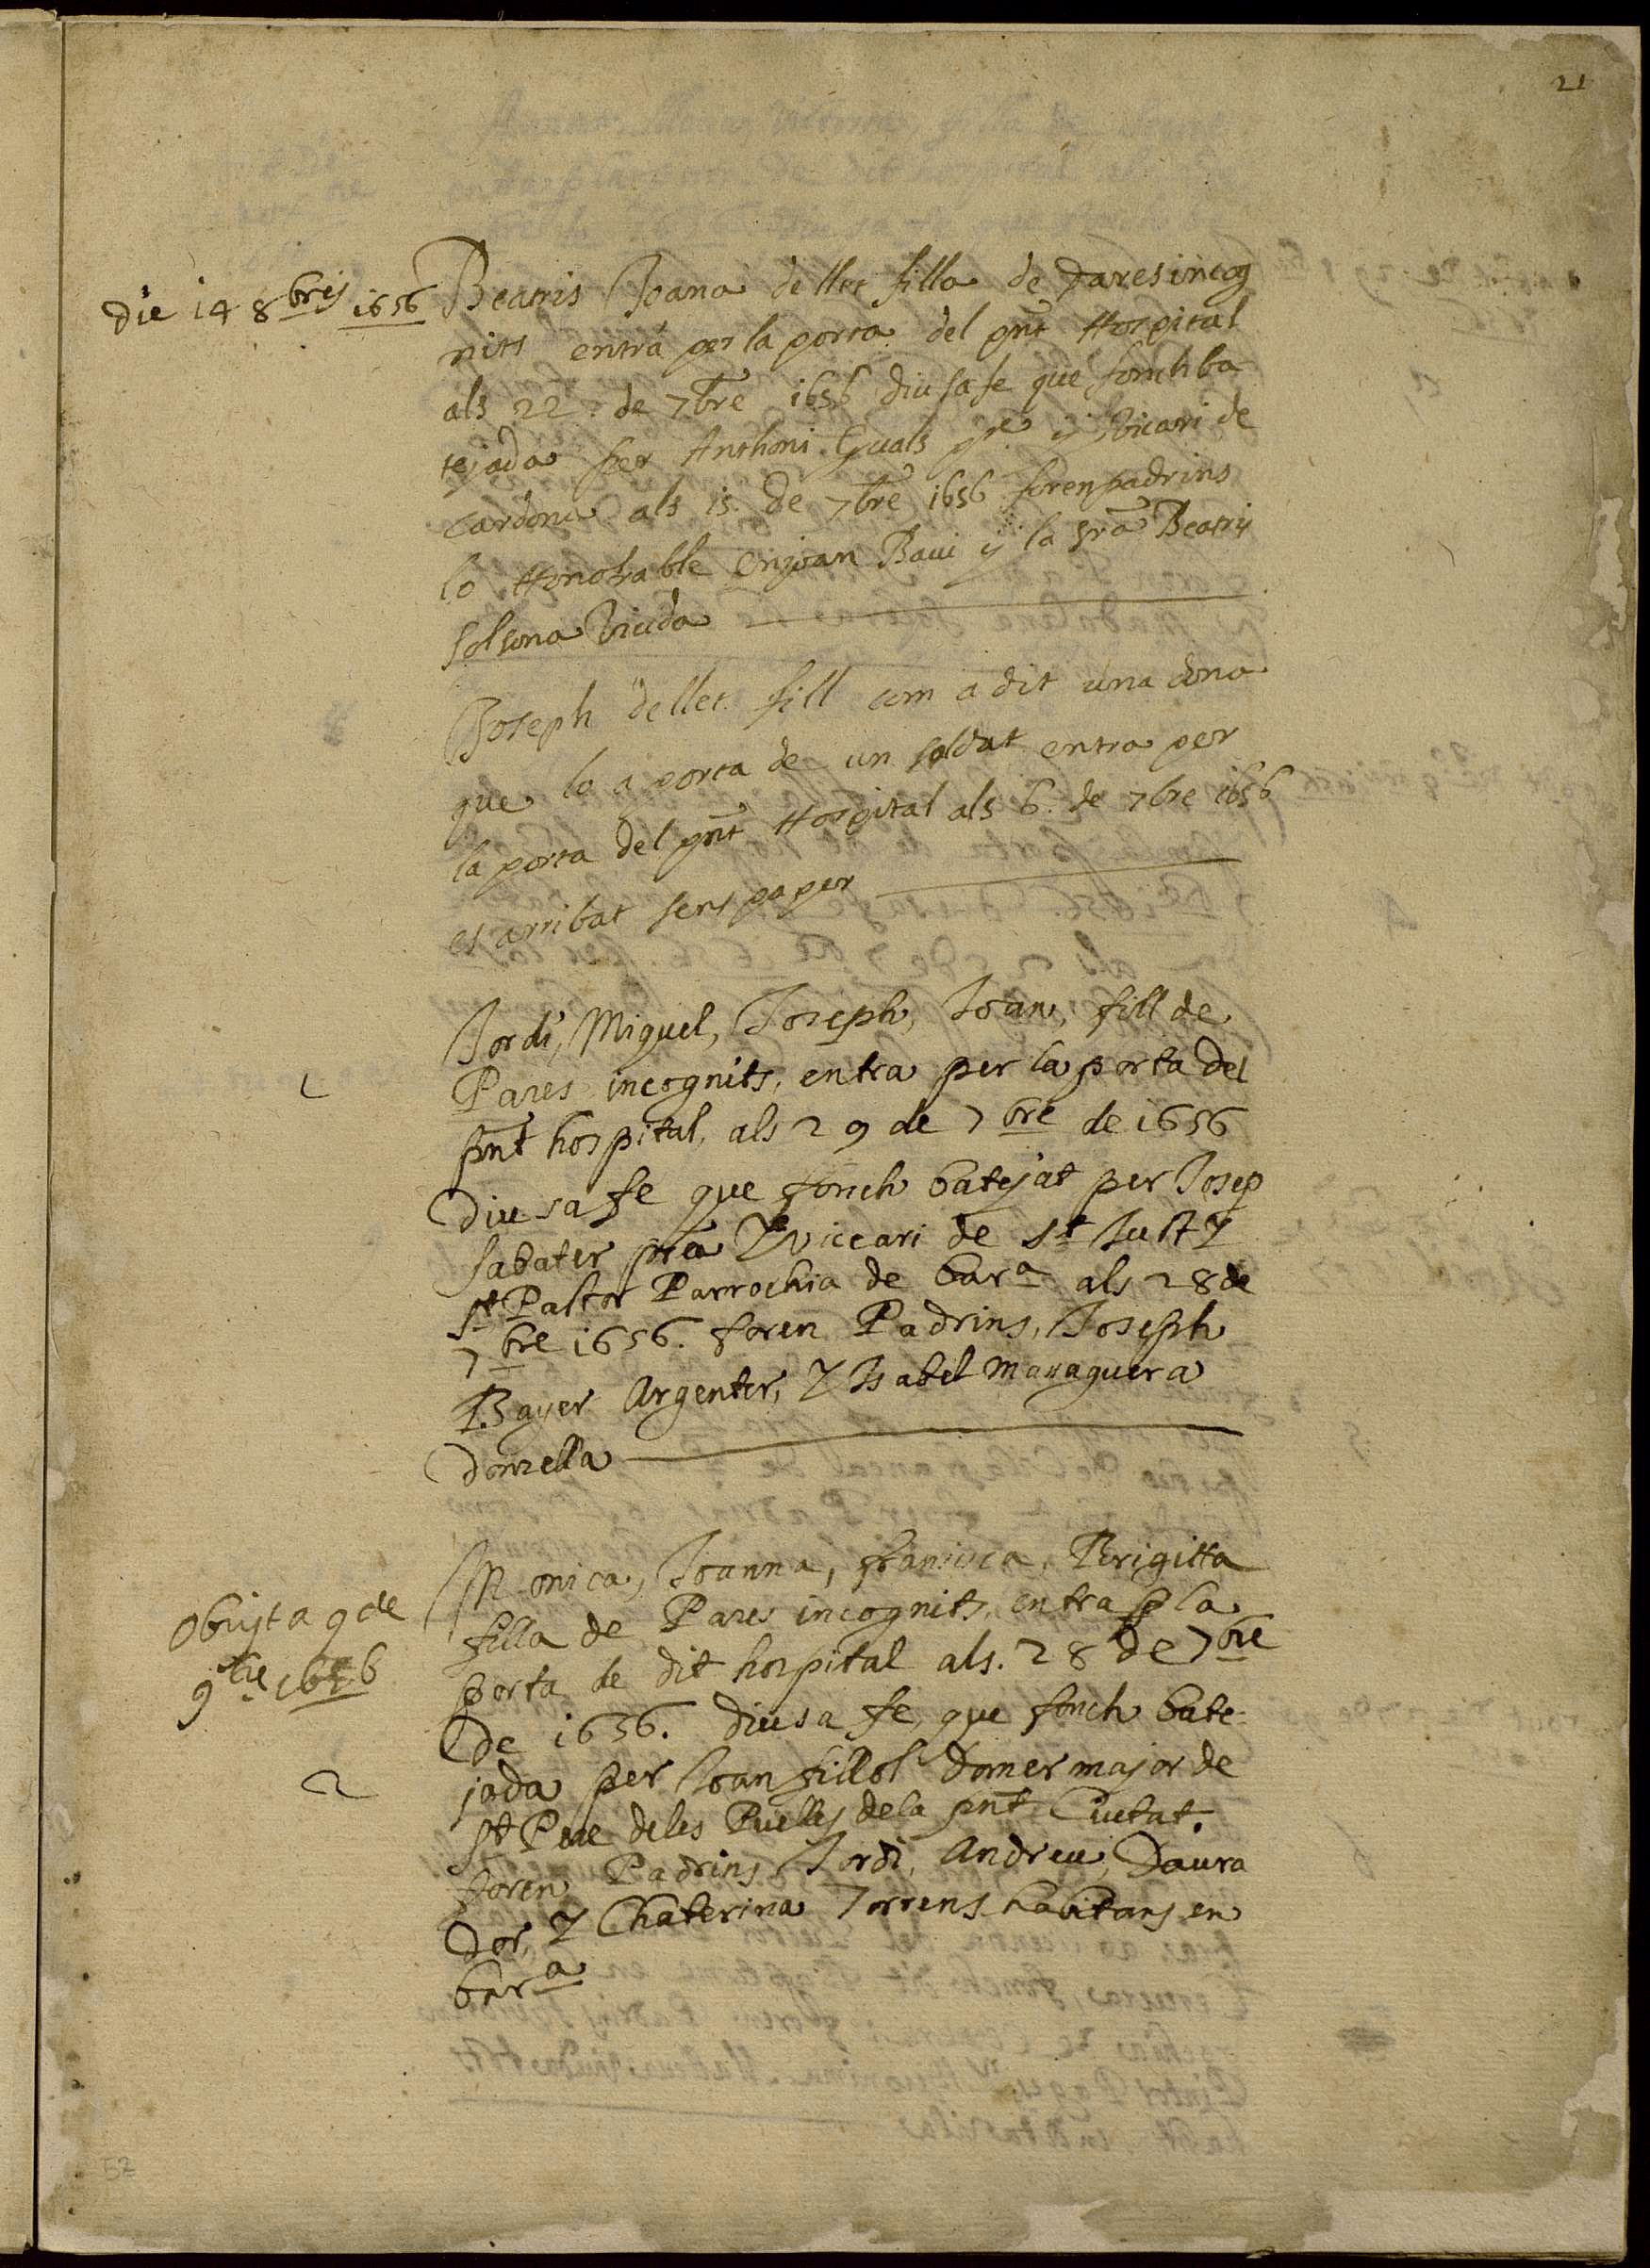 21
die 14 8bris 1656
Beatris Joana de llet filla de Paresincog
nits entra per la porta del pnt Hospital
als 22 de 7bre 1656 diu sa fe que fonch ba
tejada per Anthoni Guals pre y Vicari de
Cardona als 15 de 7bre 1656 foren padrins
lo Honorable en Joan Baui y la sra Beatris
Solsona Viuda
Joseph de llet fill com a dit una dona
que lo a porta de un soldat entra per
la porta del pnt Hospital als 6 de 7bre 1656
es arribat sens paper
Jordi, Miquel, Joseph, Joan, fill de
Pares incognits, entra per la porta del
pnt hospital, als 29 de 7bre de 1656
Diu sa fe que fonch batejat per Josep
Sabater pre Y viccari de St Just Y
St Pastor Parrochia de Bara als 28 de
7bre 1656. foren Padrins, Joseph
Bayer Argenter, Y Isabel Maraguera
donzella
Obijt a 9 de
9bre 1656
2
Monica, Joanna, fransisca, Brigitta
filla de Pares incognits, entra p la
porta de dit hospital als. 28 de 7bre
De 1656. diu sa fe, que fonch bate-
jada per Joan fillol Domer major de
St Pere deles Puelles dela pnt Ciutat.
foren Padrins Jordi, Andreu, Daura
Dor, Y Chaterina Torrens habitans en
bara
52